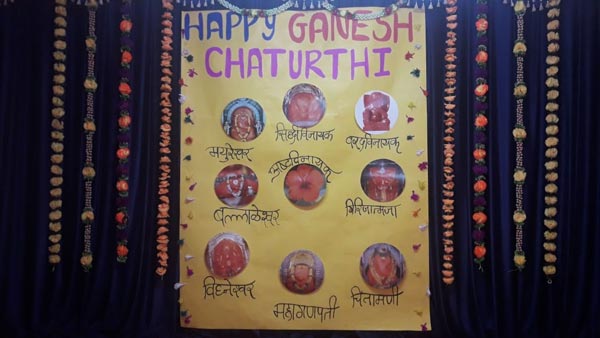 HAPPY GANESH
CHATURTHI
मयुरेश्वर
सिध्दीविनायक
वरदविनायक
अष्टविनायक
बल्लाळेश्वर
गिरिजात्मजा
विघ्नेश्वर
महागणपती
चिंतामणी